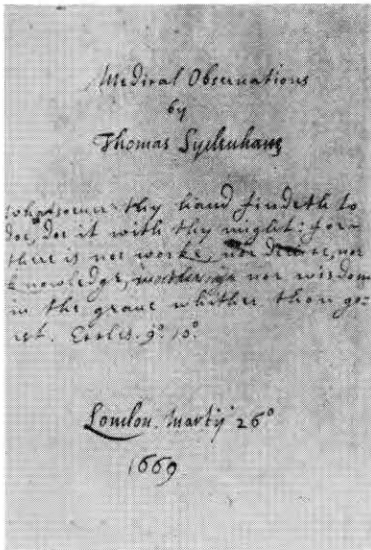 Medical Observations
by
Thomas Sydenham
Whatsoever thy hand findeth to
doe, doe it with thy might: for
there is noe worke, nor device, nor
knowledge, nor wisdom
in the grave whither thou go=
est. Eccles. 9º. 10º.
London. Martij 26º
1669